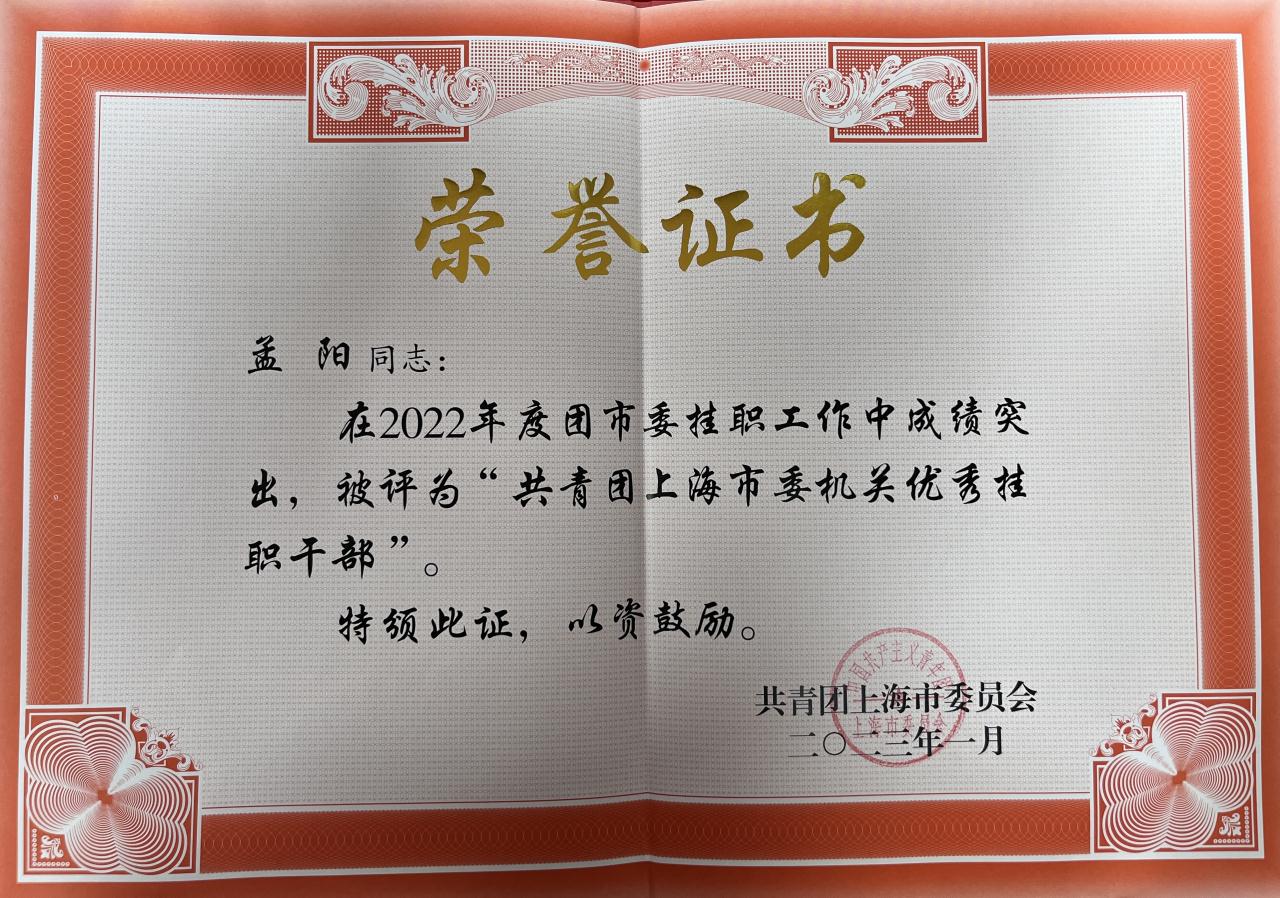 荣誉证书
孟 阳 同志：
在2022年度团市委挂职工作中成绩突
出，被评为“共青团上海市委机关优秀挂
职干部”。
特颁此证，以资鼓励。
共青团上海市委员会
二〇二三年一月
中国共产主义青年团
上海市委员会